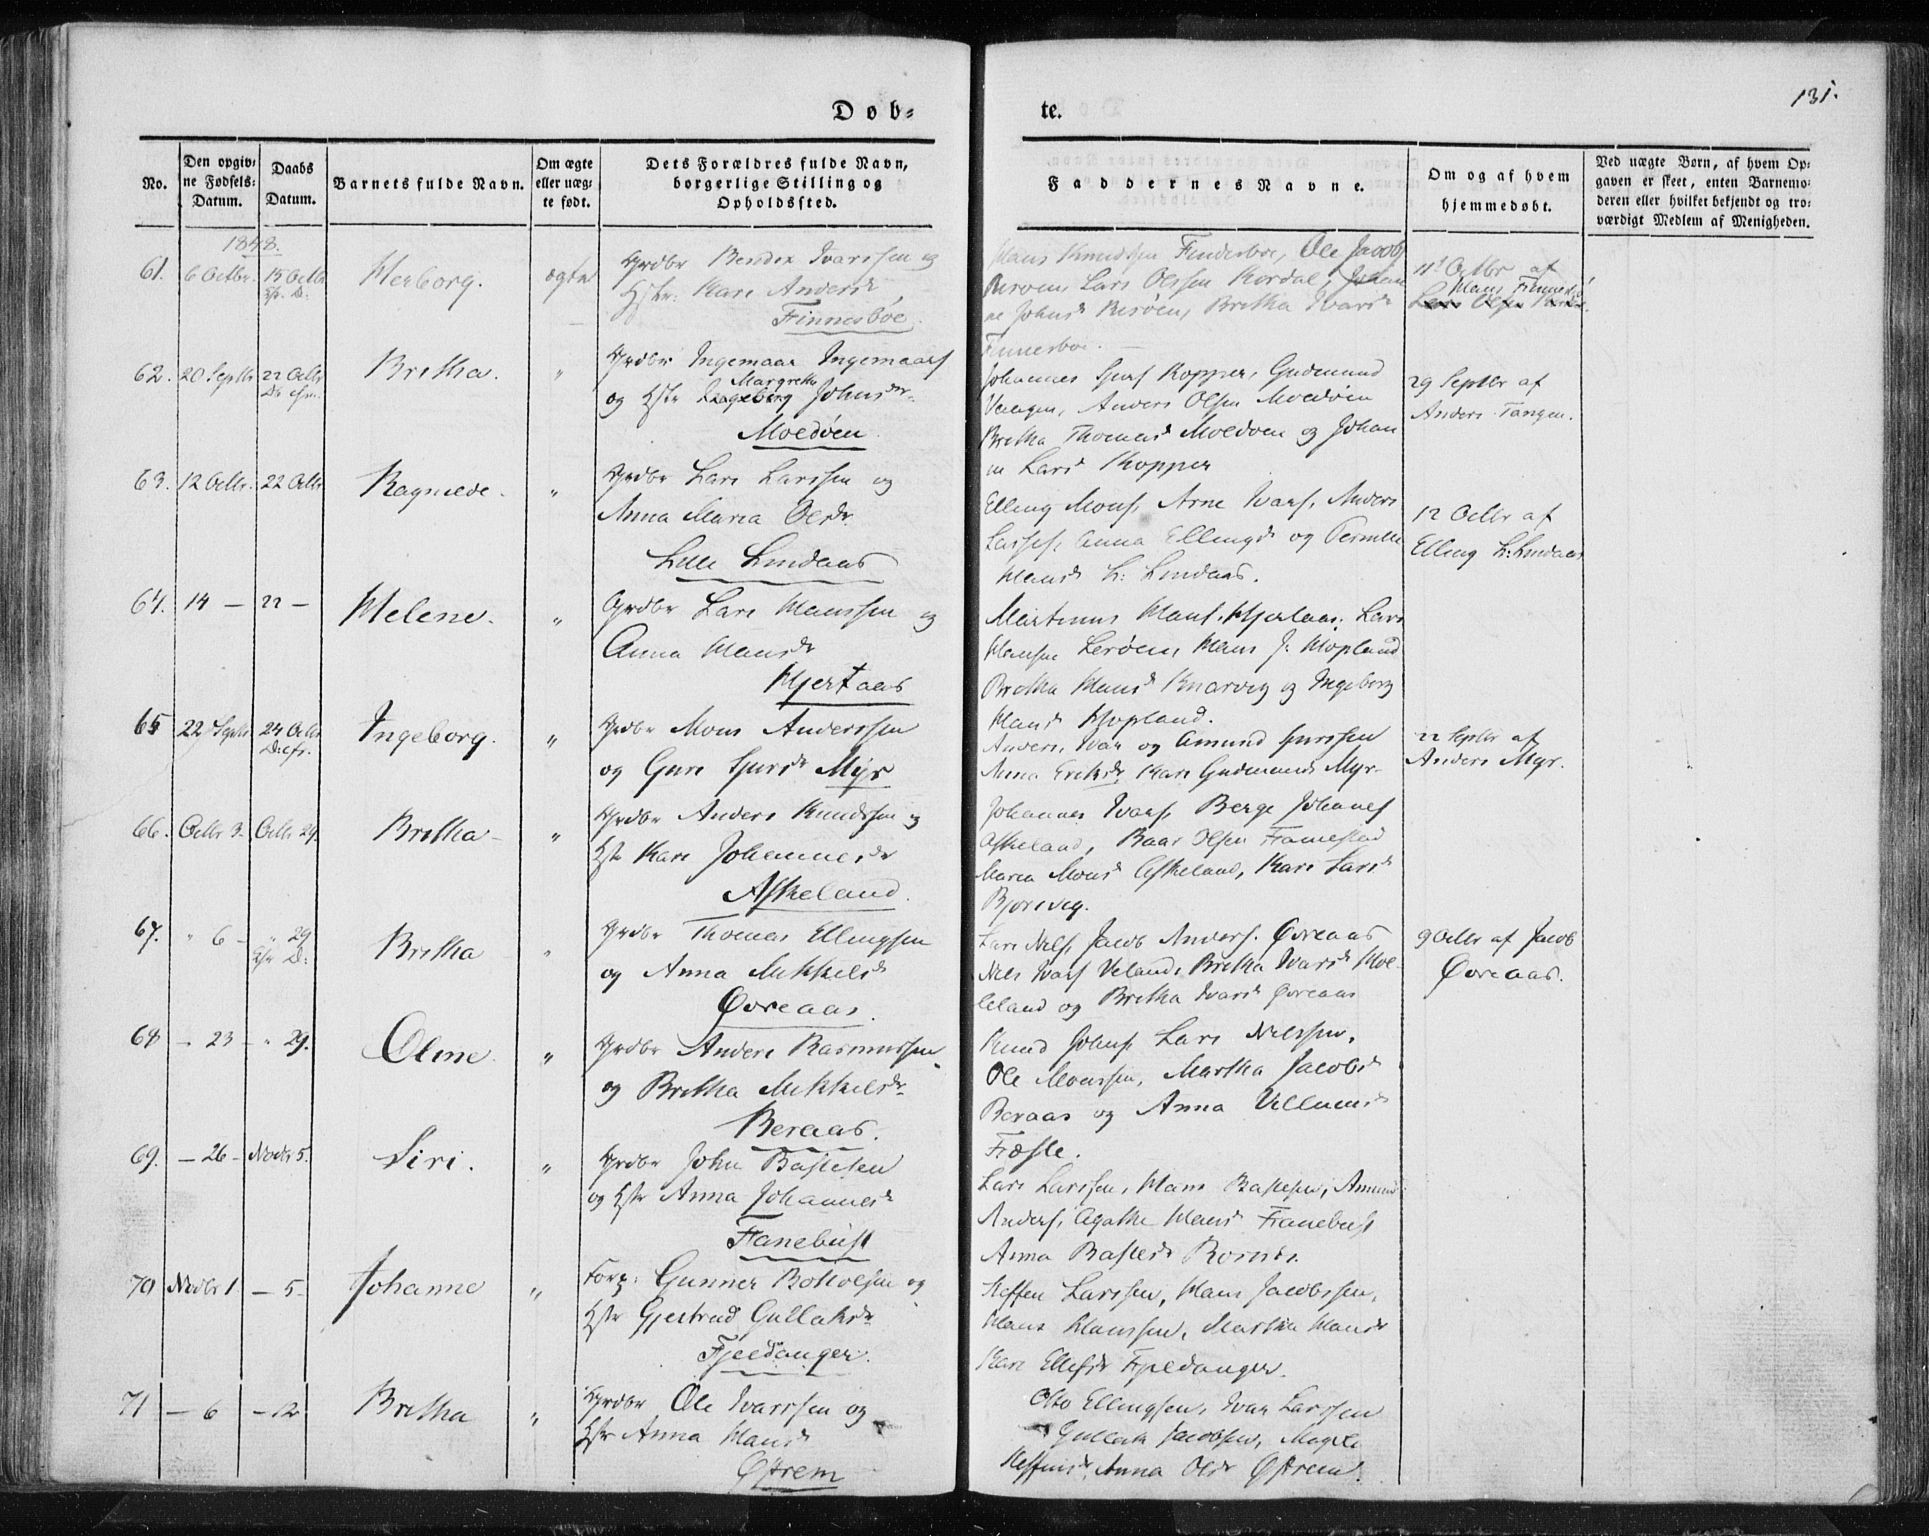 Døb-
te.
131.
No.
Den opgiv-
ne Fødsels-
Datum.
Daabs
Datum.
Barnets fulde Navn.
Om ægte
eller uæg-
te født.
Dets Forældres fulde Navn,
borgerlige Stilling og
Opholdssted.
Faddernes Navne.
Om og af hvem
hjemmedøbt.
Ved uægte Børn, af hvem Op-
gaven er skeet, enten Barnemo-
deren eller hvilket bekjendt og tro-
værdigt Medlem af Menigheden.
1848.
61. 6 Octbr. 15 Octbr Herborg. ægte
Grdbr Bendix Ivarssen og
Hstr: Kari Andersd
Finnesbøe.
Hans Knudssen Finnesboe, Ole Jacobs
Lars Olssen Kordal, Johan
ne Johnsd Risøen, Britha Ivarsd
Finnesboe.
11t Octbr af
Hans Finnesb
62. 20 Septbr 22 Octbr Britha. "
Grdbr Ingemaar Ingemaars
og Hstr Margrethe Johnsdr.
Moldøen.
Johannes Sjurs Kopper, Gudmund
Vaagen, Anders Olsen Moldøen
Britha Thomasd Moldøen og Johan
ne Larsd Kopper
29 Septbr af
Anders Tangen.
63. 12 Octbr. 22 Octbr Ragnilde. "
Grdbr Lars Larssen og
Anna Maria Olsdr.
Lille Lindaas
Elling Mons, Arne Ivars, Anders
Lasses, Anna Ellingsd og Pernille
Hansd L: Lindaas.
12 Octbr af
Elling L: Lindaas
64. 14 — 22 — Helene. "
Grdbr Lars Hanssen og
Anna Hansd
Hjertaas
Martinus Hans. Hjertaas, Lars
Hansen Lerøen, Hans J: Hopland
Britha Hansd Knarvig og Ingeborg
Hansd Hopland.
65 22 Septbr 24 Octbr Ingeborg. "
Grdbr Mons Anderssen
og Guri Sjursdr Myr
Anders, Ivar og Amund Sjurssen
Anna Eriksdr, Kari Gudmunds Myr.
22 Septbr af
Anders Myr.
66. Octbr 3. Octbr 29. Britha "
Grdbr Anders Knudssen og
Hstr Kari Johannesdr
Askeland.
Johannes Ivars, Berge Johannes
Askeland, Baar Olsen Framestad
Maria Monsd Askeland, Kari Larsd
Bjørevig.
67. " 6 — " 29 Britha "
Grdbr Thomas Ellingsen
og Anna Mikkelsd
Øvreaas.
Lars Nils, Jacob Anders. Øvreaas
Nils Ivars Veland, Britha Ivarsd Mol-
leland og Britha Ivarsd Øvreaas
9 Octbr af Jacob
Øvreaas.
68 — 23 — " 29. Oline. "
Grdbr Anders Rasmussen
og Britha Mikkelsdr.
Beraas.
Knud Johns, Lars Nilssen,
Ole Monssen, Martha Jacobsd
Beraas og Anna Villumsd
Fræsle.
69. — 26 — Novbr 5. Siri. "
Grdbr John Bastesen
og Hstr Anna Johannesd
Fanebust
Lars Larssen, Hans Bastesen, Amund
Anders, Agathe Hansd Fanebust
Anna Bastesdr
70 Novbr 1. — 5. Johanne "
Gunner Botholfsen og
Hstr Gjertrud Gullaksdr
Fjeldanger.
Steffen Larssen, Hans Jacobssen,
Hans Hanssen, Martha Hansdr
Kari Ellefsdr Fjeldanger.
71 — 6 — 12 Britha "
Grdbr Ole Ivarssen og
Hstr Anna Hansd
Østrem
Otto Ellingsen, Ivar Larssen
Gullak Jacobsen, Magle
Steffensd, Anna Olsdr Østrem.